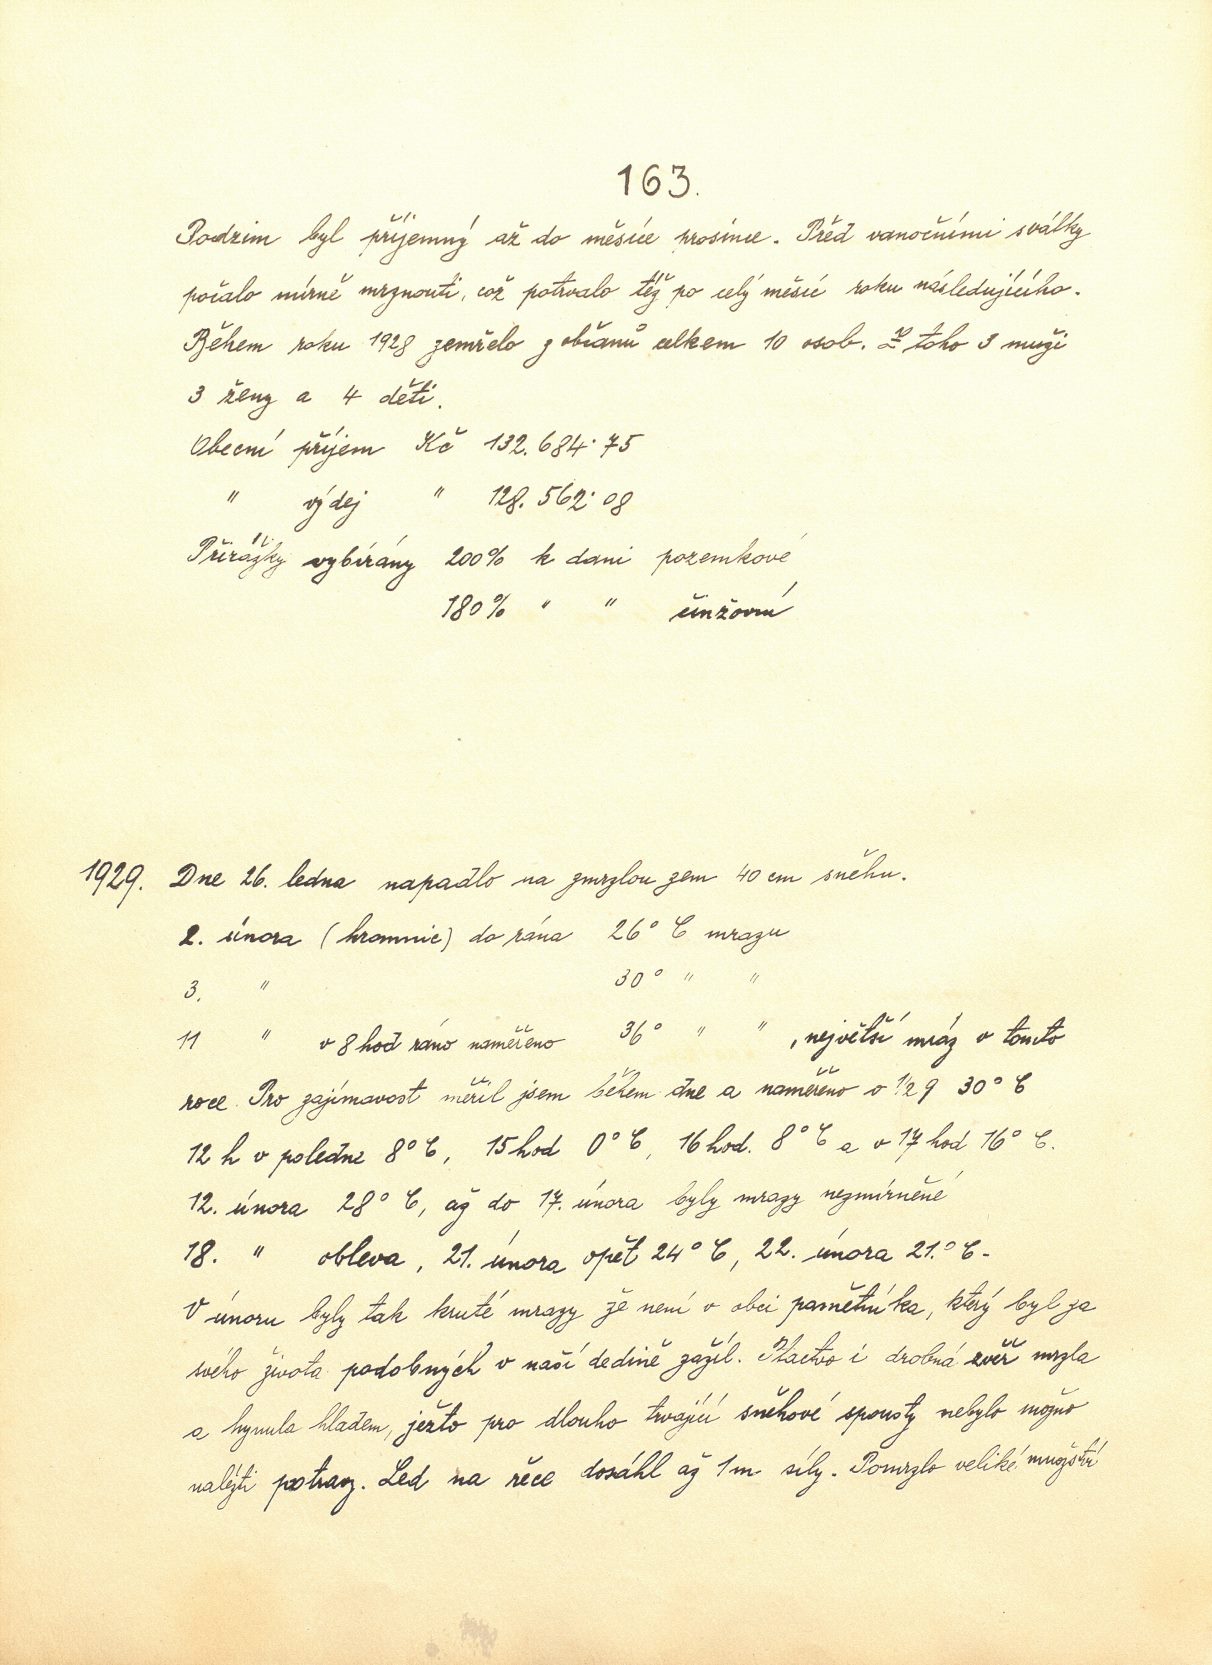 163.
Podzim byl příjemný až do měsíce prosince. Před vanočními svátky
počalo mírně mrznouti, což potrvalo též po celý měsíc roku následujícího.
Během roku 1928 zemřelo z občanů celkem 10 osob. Z toho 3 muži
3 ženy a 4 děti.
Obecní příjem Kč 132.684·75
" výdej " 128.562·08
Přirážky vybírány 200% k dani pozemkové
180% " " činžovní
1929. Dne 26. ledna napadlo na zmrzlou zem 40 cm sněhu.
2. února (hromnic) do rána 26° C mrazu
3. " 30° " "
11 " v 8 hod ráno naměřeno 36° " " , největší mráz v tomto
roce. Pro zajímavost měřil jsem během dne a naměřeno v 1/2 9 30° C
12 h v poledne 8° C, 15 hod 0° C, 16 hod. 8° C a v 17 hod 16° C.
12. února 28° C, až do 17. února byly mrazy nezmírněné
18. " obleva, 21. února opět 24° C, 22. února 21.° C.
V únoru byly tak kruté mrazy že není v obci pamětníka, který byl za
svého života podobných v naší dedině zažil. Ptactvo i drobná zvěř mrzla
a hynula hladem, ježto pro dlouho trvající sněhové spousty nebylo možno
nalézti potravy. Led na řece dosáhl až 1 m síly. Pomrzlo veliké množství